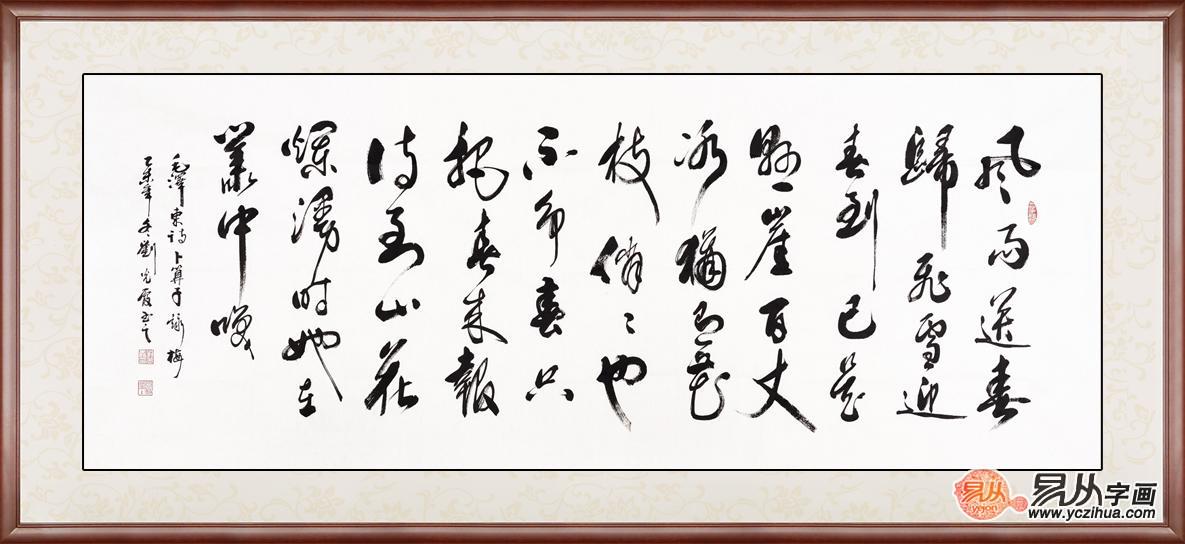 風雨送春
歸飛雪迎
春到已是
懸崖百丈
冰猶有花
枝俏〻也
不争春只
把春来報
待到山花
爛漫时她在
叢中笑
毛澤東詩卜算子詠梅
乙未年冬劉光霞书之
易从
yejon
易从字画
www.yczihua.com